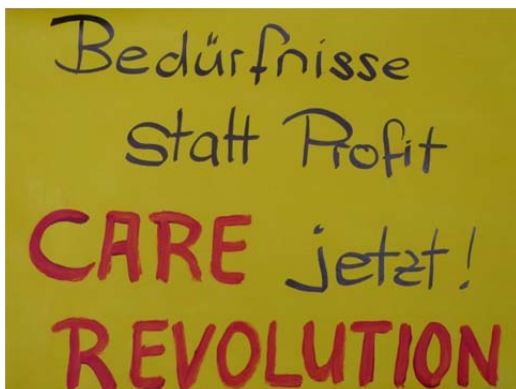 Bedürfnisse
statt Profit
CARE jetzt!
REVOLUTION